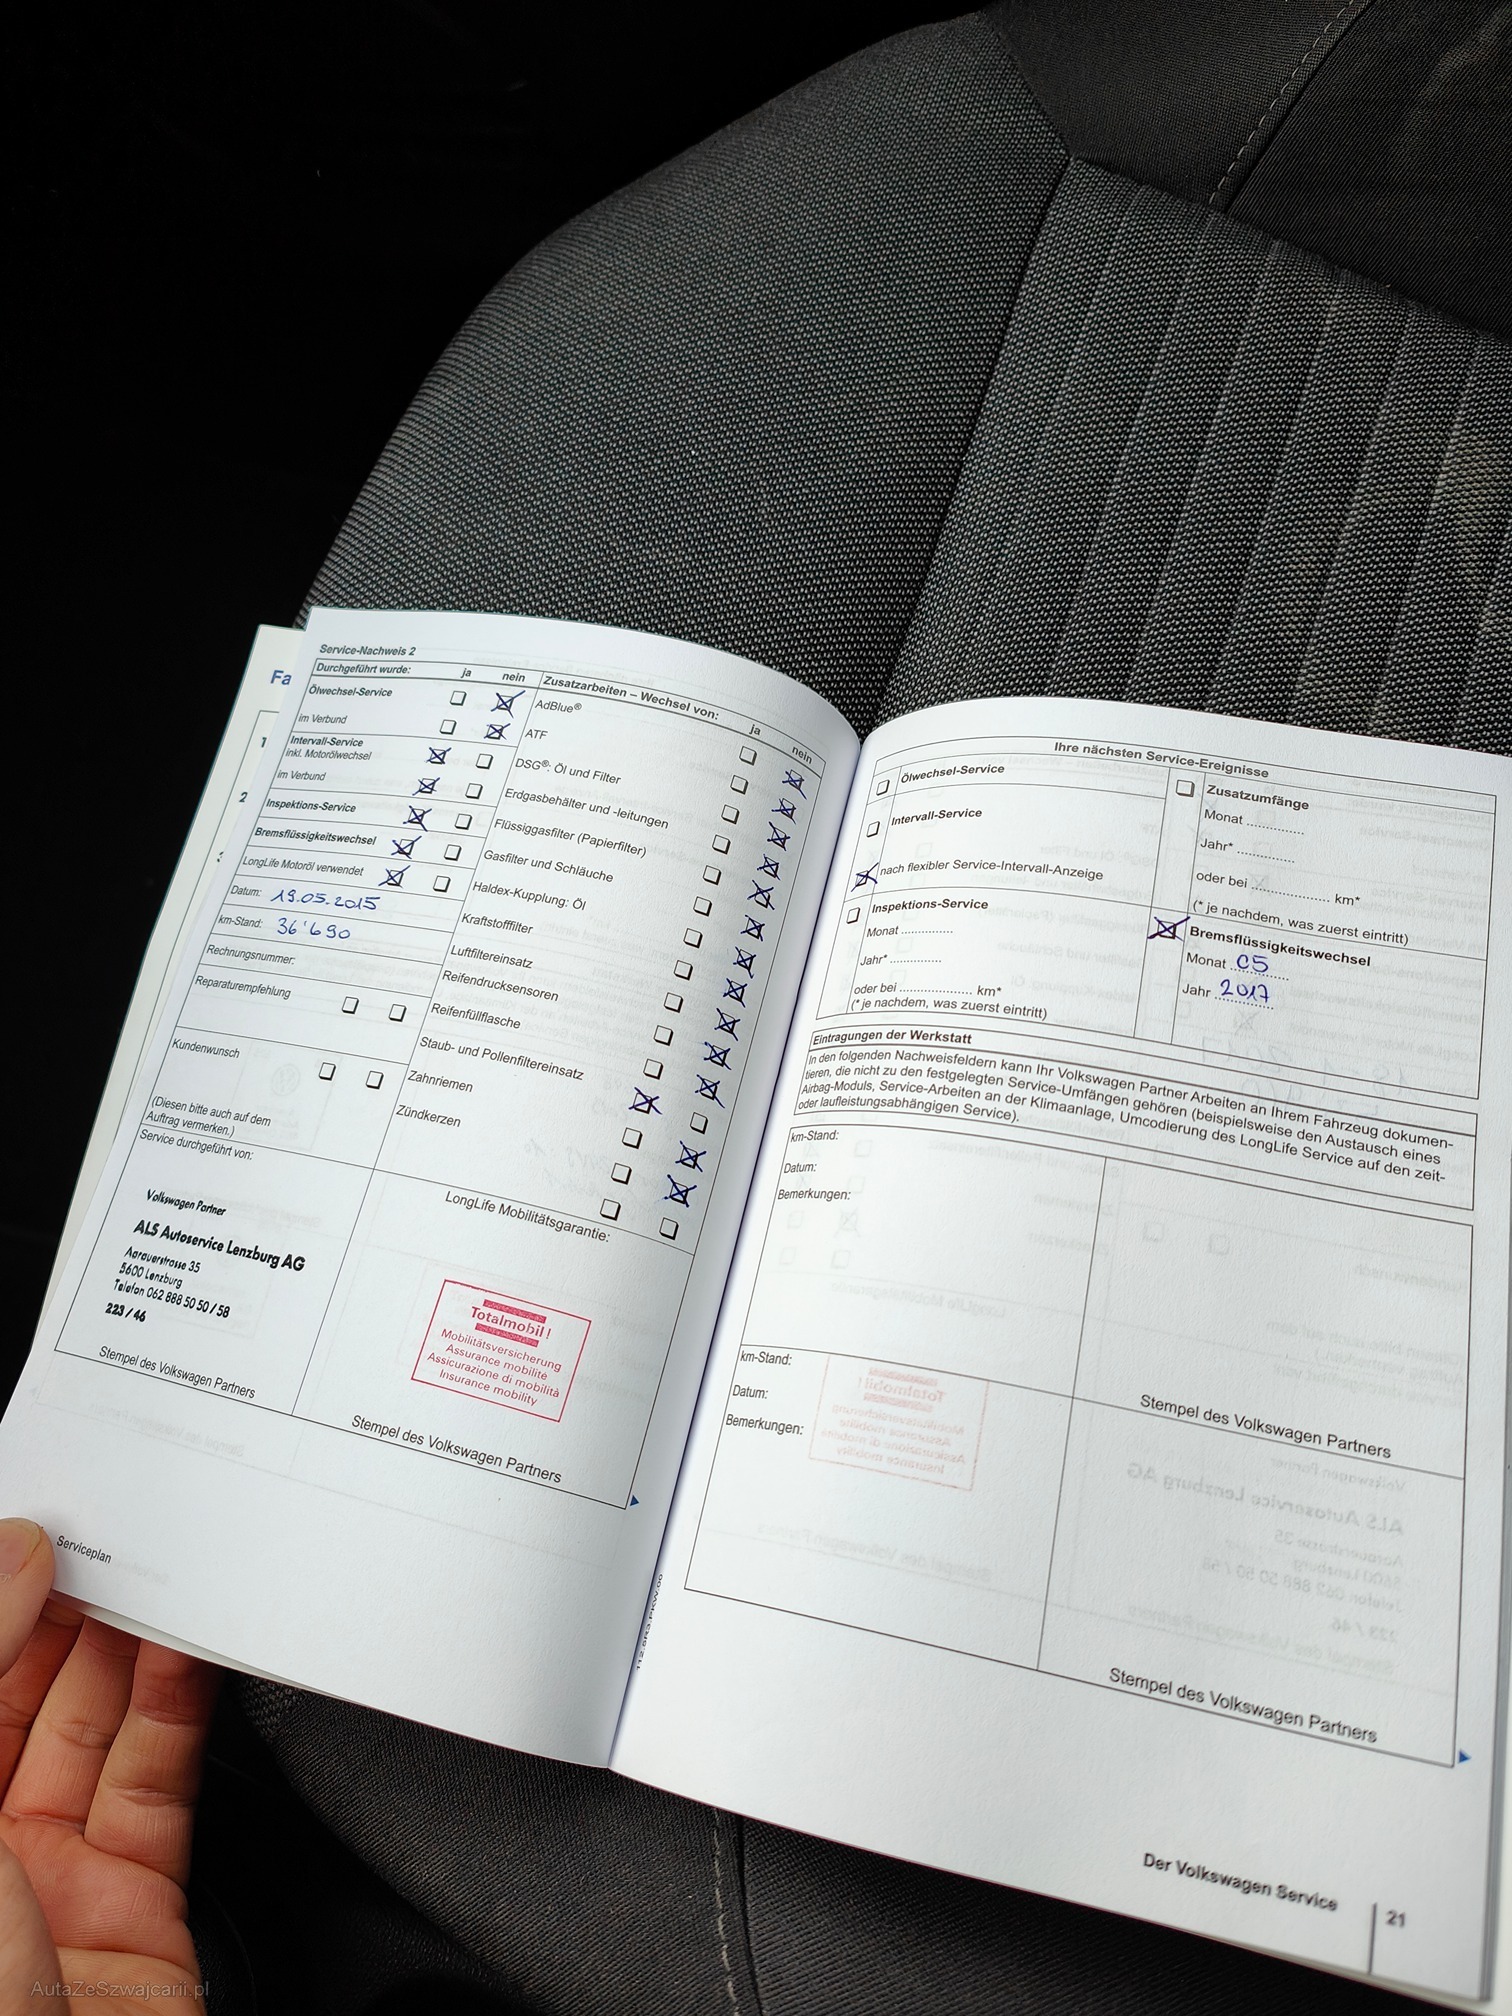 Fa
1
2
Service-Nachweis 2
Durchgeführt wurde: ja nein
Ölwechsel-Service
im Verbund
Intervall-Service
inkl. Motorölwechsel
im Verbund
Inspektions-Service
Bremsflüssigkeitswechsel
LongLife Motoröl verwendet
Datum: 19.05.2015
km-Stand: 36'690
Rechnungsnummer:
Reparaturempfehlung
Kundenwunsch
(Diesen bitte auch auf dem
Auftrag vermerken.)
Service durchgeführt von:
Volkswagen Partner
ALS Autoservice Lenzburg AG
Aarauerstrasse 35
5600 Lenzburg
Telefon 062 888 50 50 / 58
223 / 46
Stempel des Volkswagen Partners
Zusatzarbeiten – Wechsel von: ja nein
AdBlue®
ATF
DSG®: Öl und Filter
Erdgasbehälter und -leitungen
Flüssiggasfilter (Papierfilter)
Gasfilter und Schläuche
Haldex-Kupplung: Öl
Kraftstofffilter
Luftfiltereinsatz
Reifendrucksensoren
Reifenfüllflasche
Staub- und Pollenfiltereinsatz
Zahnriemen
Zündkerzen
LongLife Mobilitätsgarantie:
Totalmobil!
Mobilitätsversicherung
Assurance mobilité
Assicurazione di mobilità
Insurance mobility
Stempel des Volkswagen Partners
Serviceplan
Ihre nächsten Service-Ereignisse
Ölwechsel-Service
Intervall-Service
nach flexibler Service-Intervall-Anzeige
Inspektions-Service
Monat ..............
Jahr* ..............
oder bei ................... km*
(* je nachdem, was zuerst eintritt)
Zusatzumfänge
Monat ..............
Jahr* ..............
oder bei ................... km*
(* je nachdem, was zuerst eintritt)
Bremsflüssigkeitswechsel
Monat 05
Jahr 2017
Eintragungen der Werkstatt
In den folgenden Nachweisfeldern kann Ihr Volkswagen Partner Arbeiten an Ihrem Fahrzeug dokumen-
tieren, die nicht zu den festgelegten Service-Umfängen gehören (beispielsweise den Austausch eines
Airbag-Moduls, Service-Arbeiten an der Klimaanlage, Umcodierung des LongLife Service auf den zeit-
oder laufleistungsabhängigen Service).
km-Stand:
Datum:
Bemerkungen:
Stempel des Volkswagen Partners
km-Stand:
Datum:
Bemerkungen:
Stempel des Volkswagen Partners
Der Volkswagen Service
21
AutaZeSzwajcarii.pl